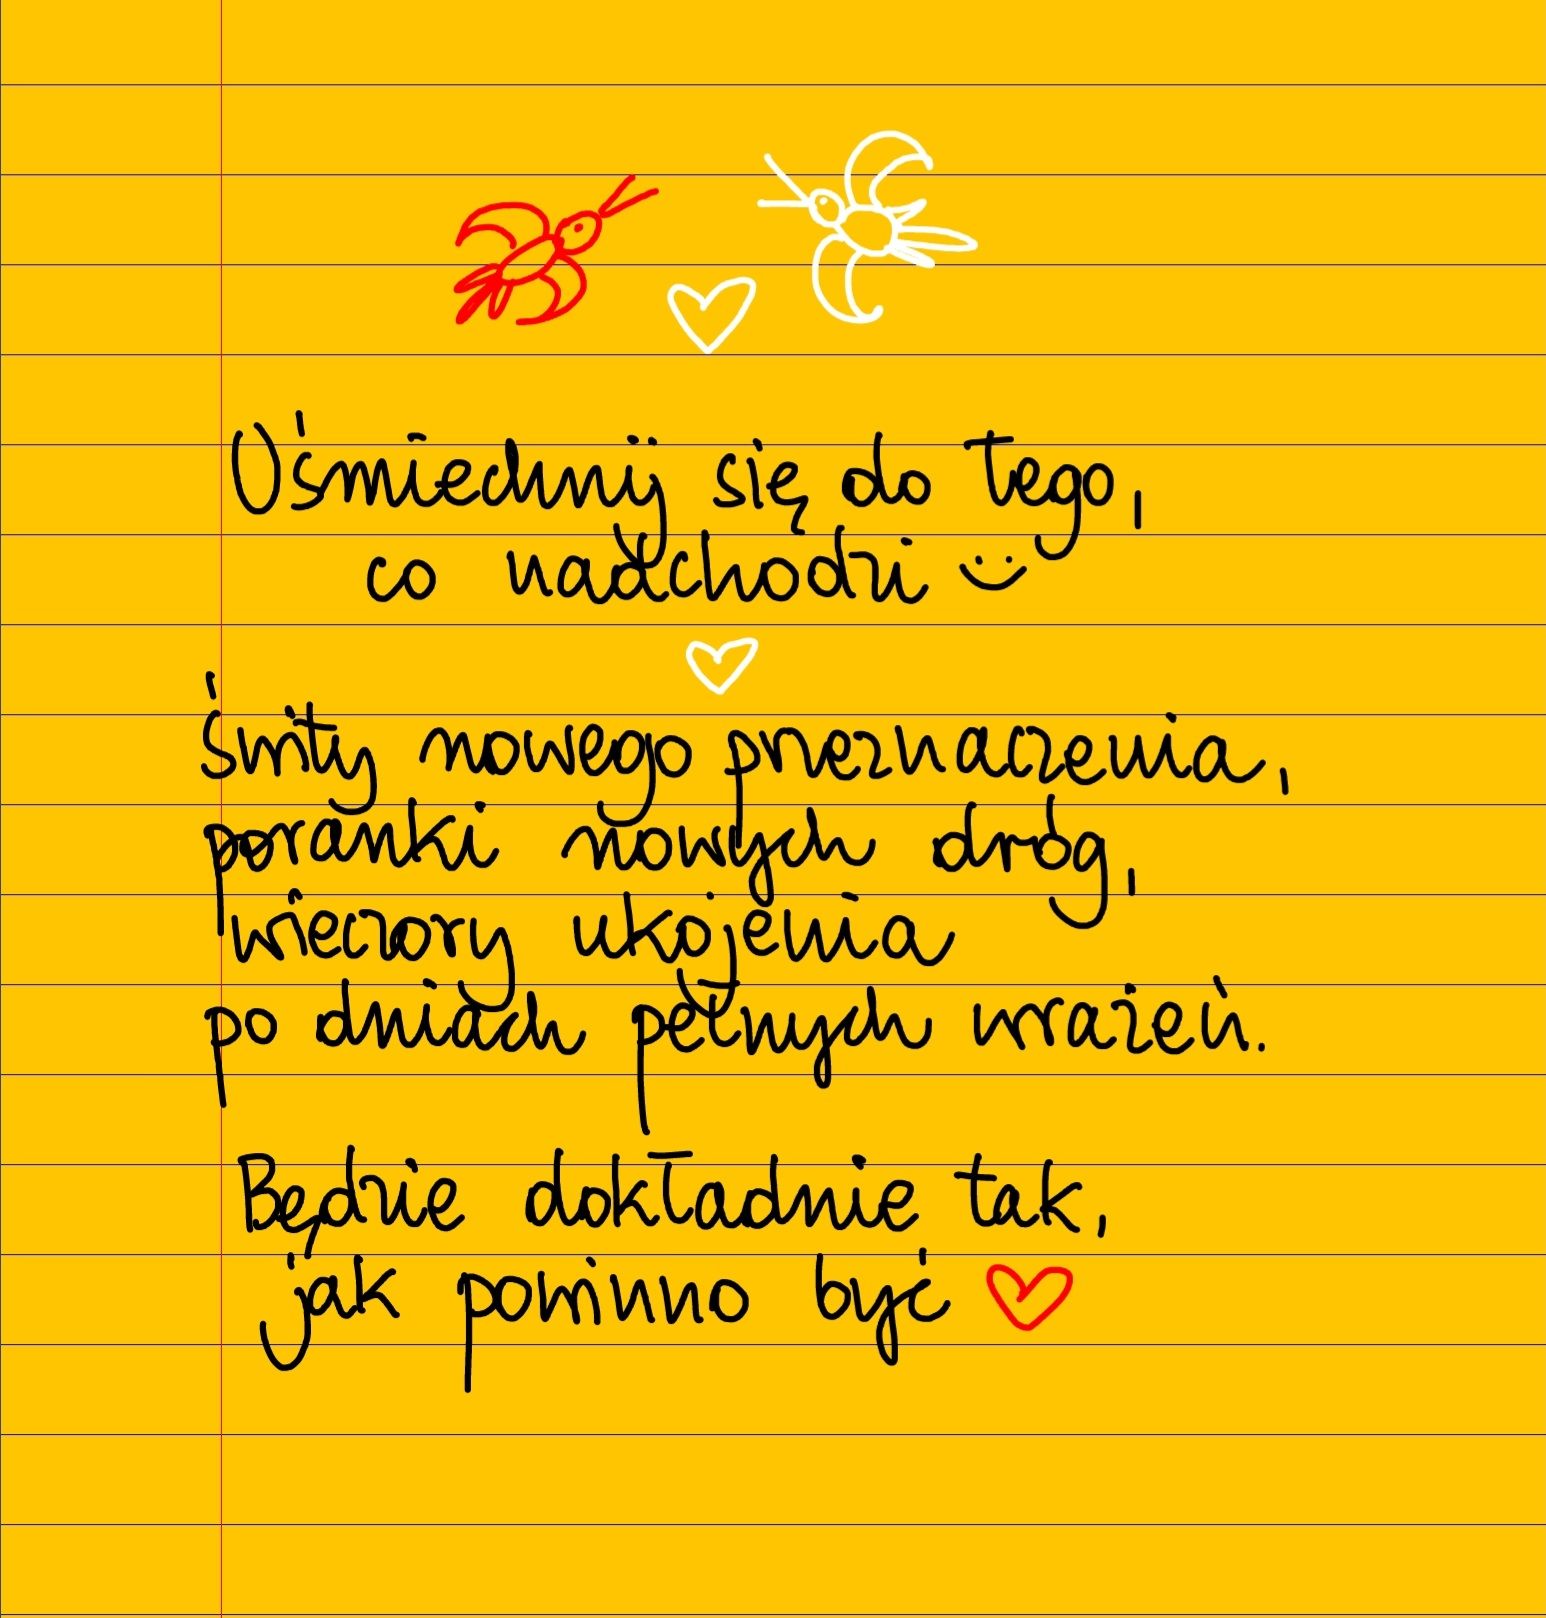 Uśmiechnij się do tego,
co nadchodzi :)
Świty nowego przeznaczenia,
poranki nowych dróg,
wieczory ukojenia
po dniach pełnych wrażeń.
Będzie dokładnie tak,
jak powinno być